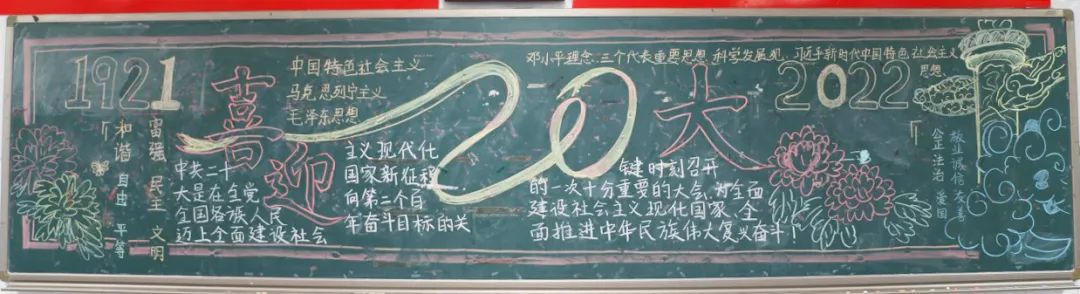 1921
富强 民主 文明
和谐 自由 平等
喜迎20大
中国特色社会主义
马克思列宁主义
毛泽东思想
邓小平理念、三个代表重要思想、科学发展观、习近平新时代中国特色社会主义
思想
2022
中共二十
大是在全党
全国各族人民
迈上全面建设社会
主义现代化
国家新征程
向第二个百
年奋斗目标的关
键时刻召开
的一次十分重要的大会,对全面
建设社会主义现代化国家、全
面推进中华民族伟大复兴奋斗!
公正 法治 爱国
敬业 诚信 友善